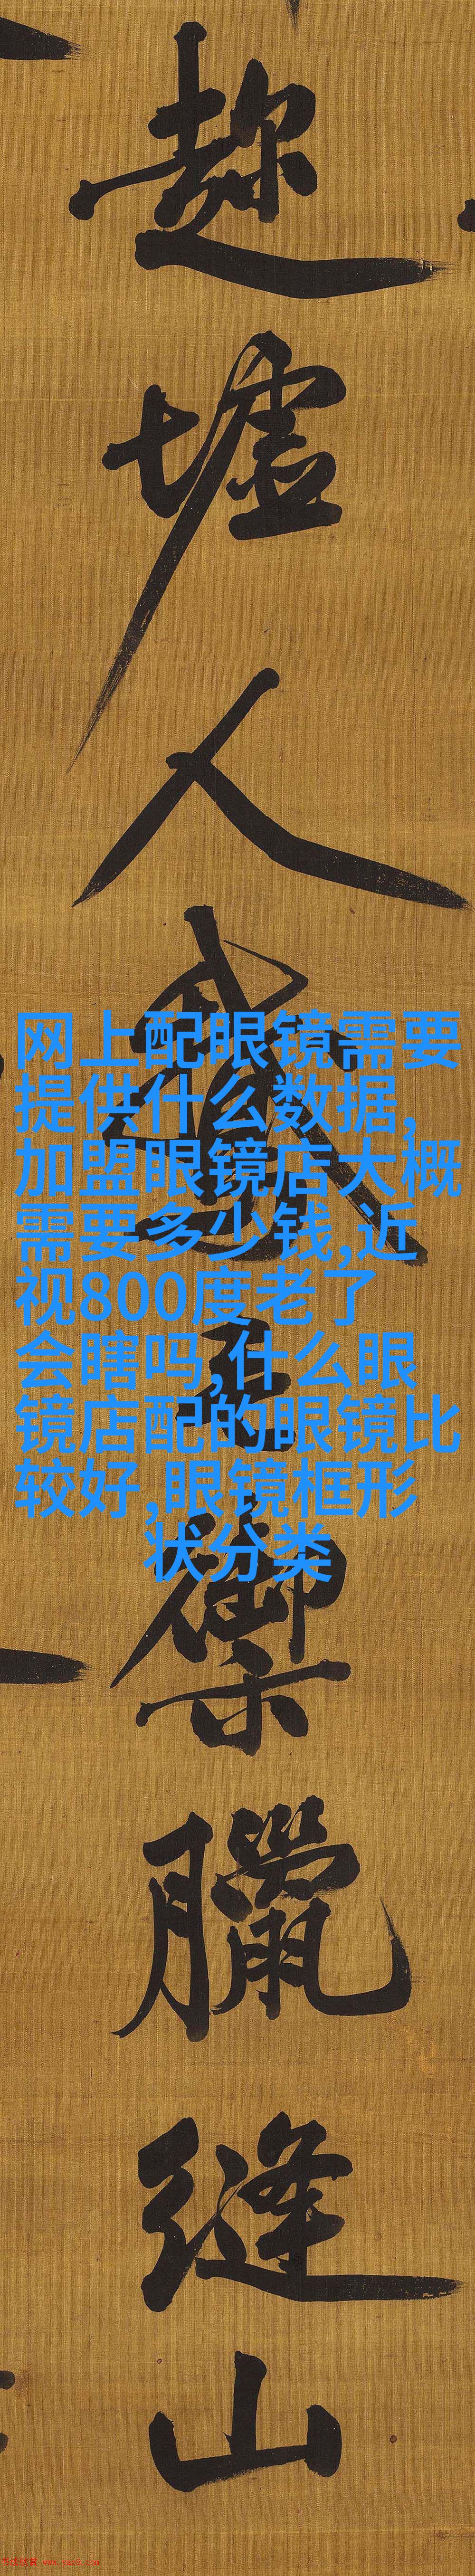 趁墟人
网上配眼镜需要
提供什么数据,
加盟眼镜店大概
需要多少钱,近
视800度老了
会瞎吗,什么眼
镜店配的眼镜比
较好,眼镜框形
状分类
御
臘
缝
山